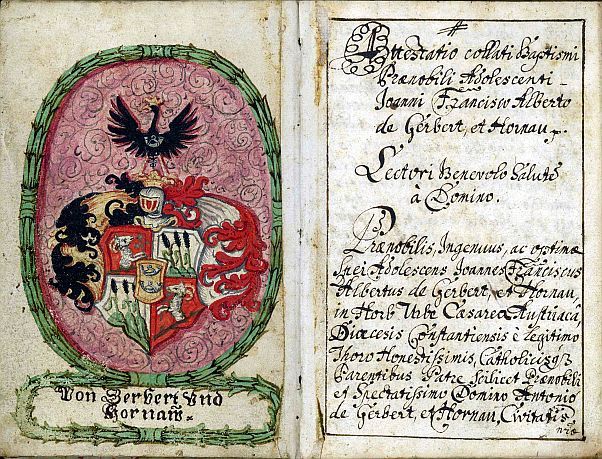 Von Gerbert Vnd
Hornaw.
Attestatio collati Baptismi
Prænobili Adolescenti
Joanni Francisco Alberto
de Gerbert, et Hornau
Lectori Benevolo Salutē
à Domino.
Prænobilis, Ingenuus, ac optimæ
Spei Adolescens Joannes Franciscus
Albertus de Gerbert, et Hornau,
in Horb Urbe Cæsareo Austriacâ,
Diœcesis Constantiensis è legitimo
Thoro Honestissimis, Catholicisq3
Parentibus Patre Scilicet Prænobili
et Spectatissimo Domino Antonio
de Gerbert, et Hornau, Civitatis